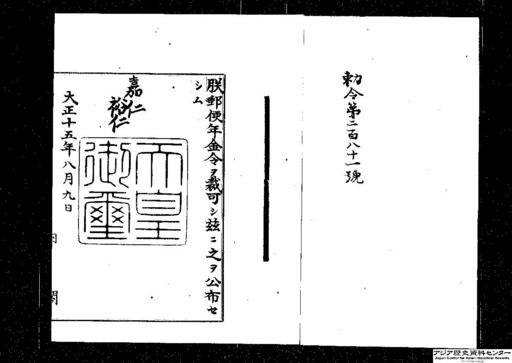 勅令第二百八十一號
朕郵便年金令ヲ裁可シ茲ニ之ヲ公布セ
シム
嘉仁
裕仁
天皇
御璽
大正十五年八月九日
内閣
アジア歴史資料センター
Japan Center for Asian Historical Records